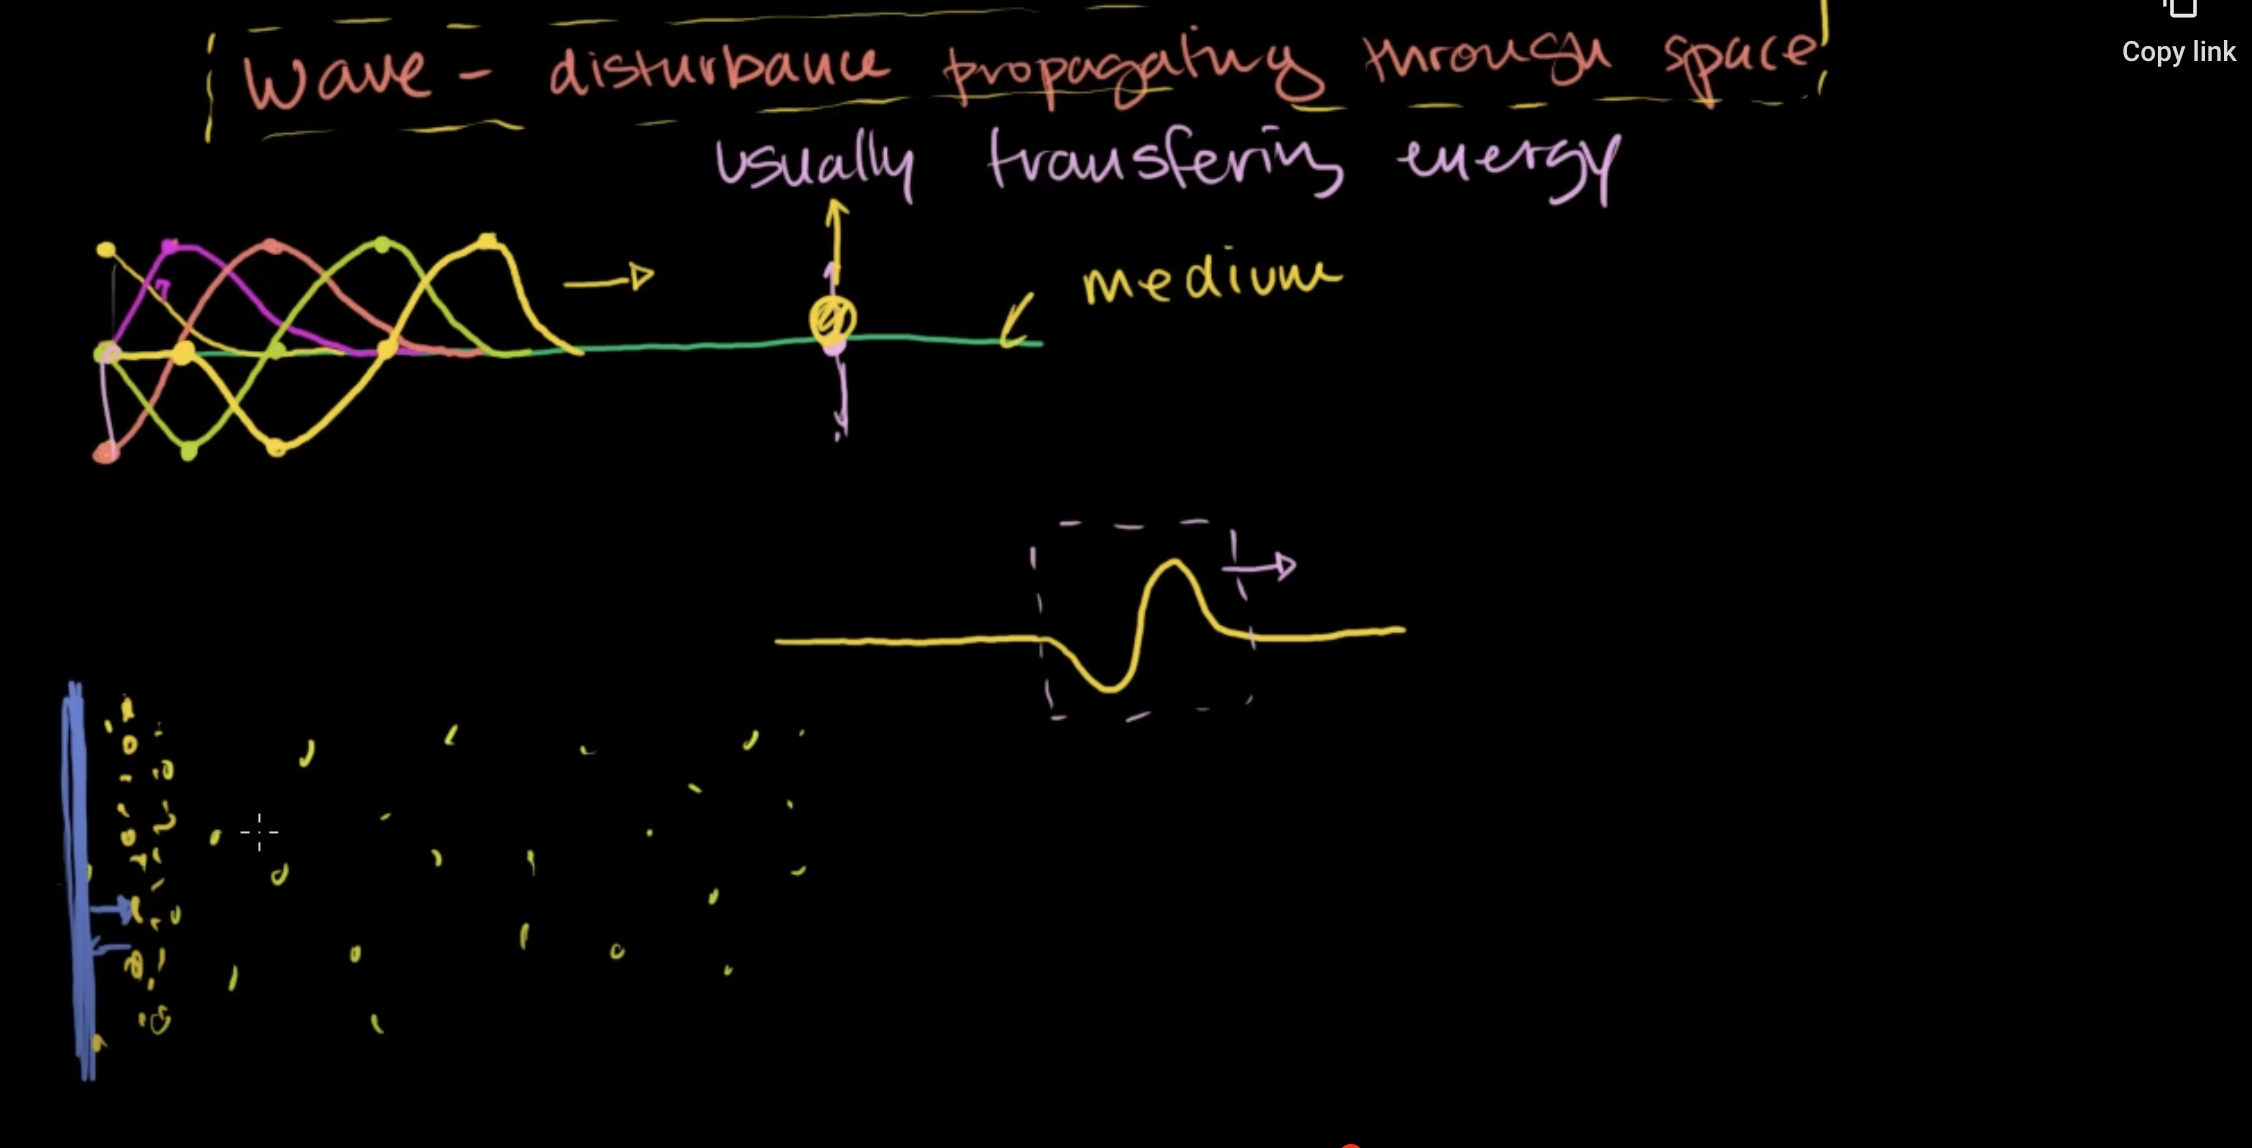 Copy link
Wave - disturbance propagating through space
usually transfering energy
medium